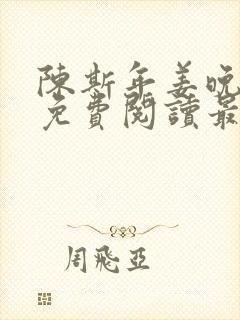 陳斯年姜晚
免費閱讀最
周飛亞